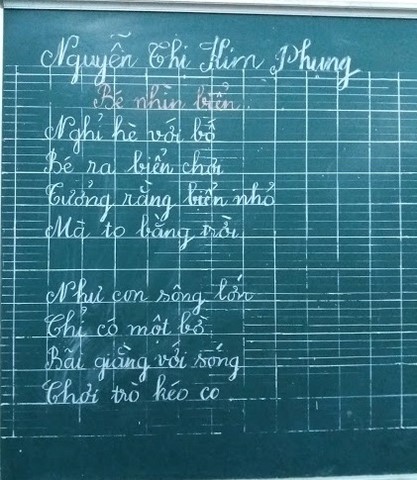 Nguyễn Thị Kim Phụng
Bé nhìn biển
Nghỉ hè với bố
Bé ra biển chơi
Tưởng rằng biển nhỏ
Mà to bằng trời.

Như con sông lớn
Chỉ có một bờ
Bãi giằng với sóng
Chơi trò kéo co